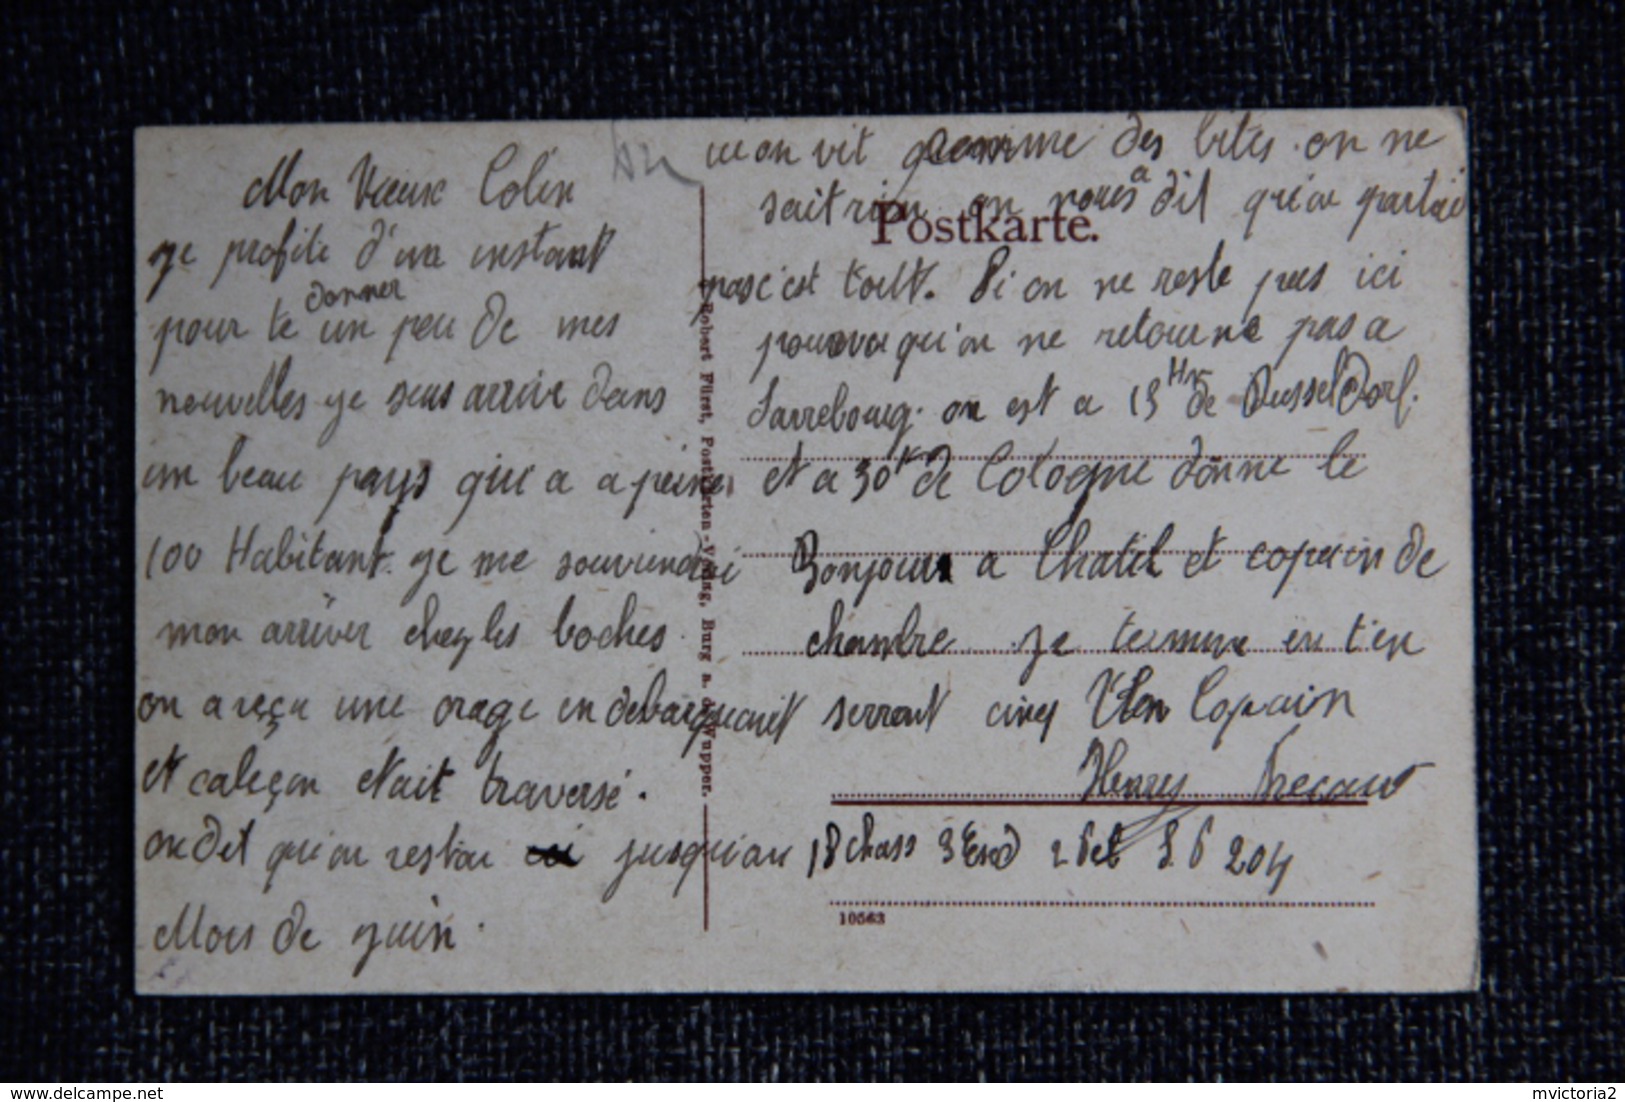 Mon Vieux Colin
je profite d'un instant
donner
pour te un peu de mes
nouvelles je suis arrivé dans
un beau pays qui a a peine
100 Habitant. je me souviendrai
mon arriver chez les boches.
on a reçu une orage en debarquant
et caleçon etait traversé.
on dit qu'on restai jusqu'au
Mois de juin.
on vit comme des bêtes. on ne
sait rien on nous a dit qu'on partai
pas c'est tout. Si on ne reste pas ici
pourvu qu'on ne retourne pas a
Sarrebourg. on est a 15 de Dusseldorf.
et a 30 K de Cologne donne le
Bonjour a Chatel et copain de
chambre. je termine en t'en
serrant cinq Ton Copain
Henry
18 chass 3 Esed 2 S.P 204
Postkarte.
Robert Fürst, Postkarten-Verlag, Burg a. d. Wupper.
10563
mvictoria2